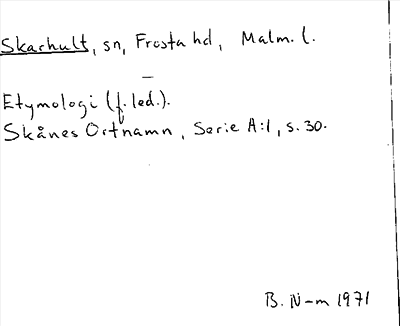 Skarhult, sn, Frosta hd, Malm. l.
—
Etymologi (f. led.).
Skånes Ortnamn, Serie A:1, s. 30.
B. N-m 1971